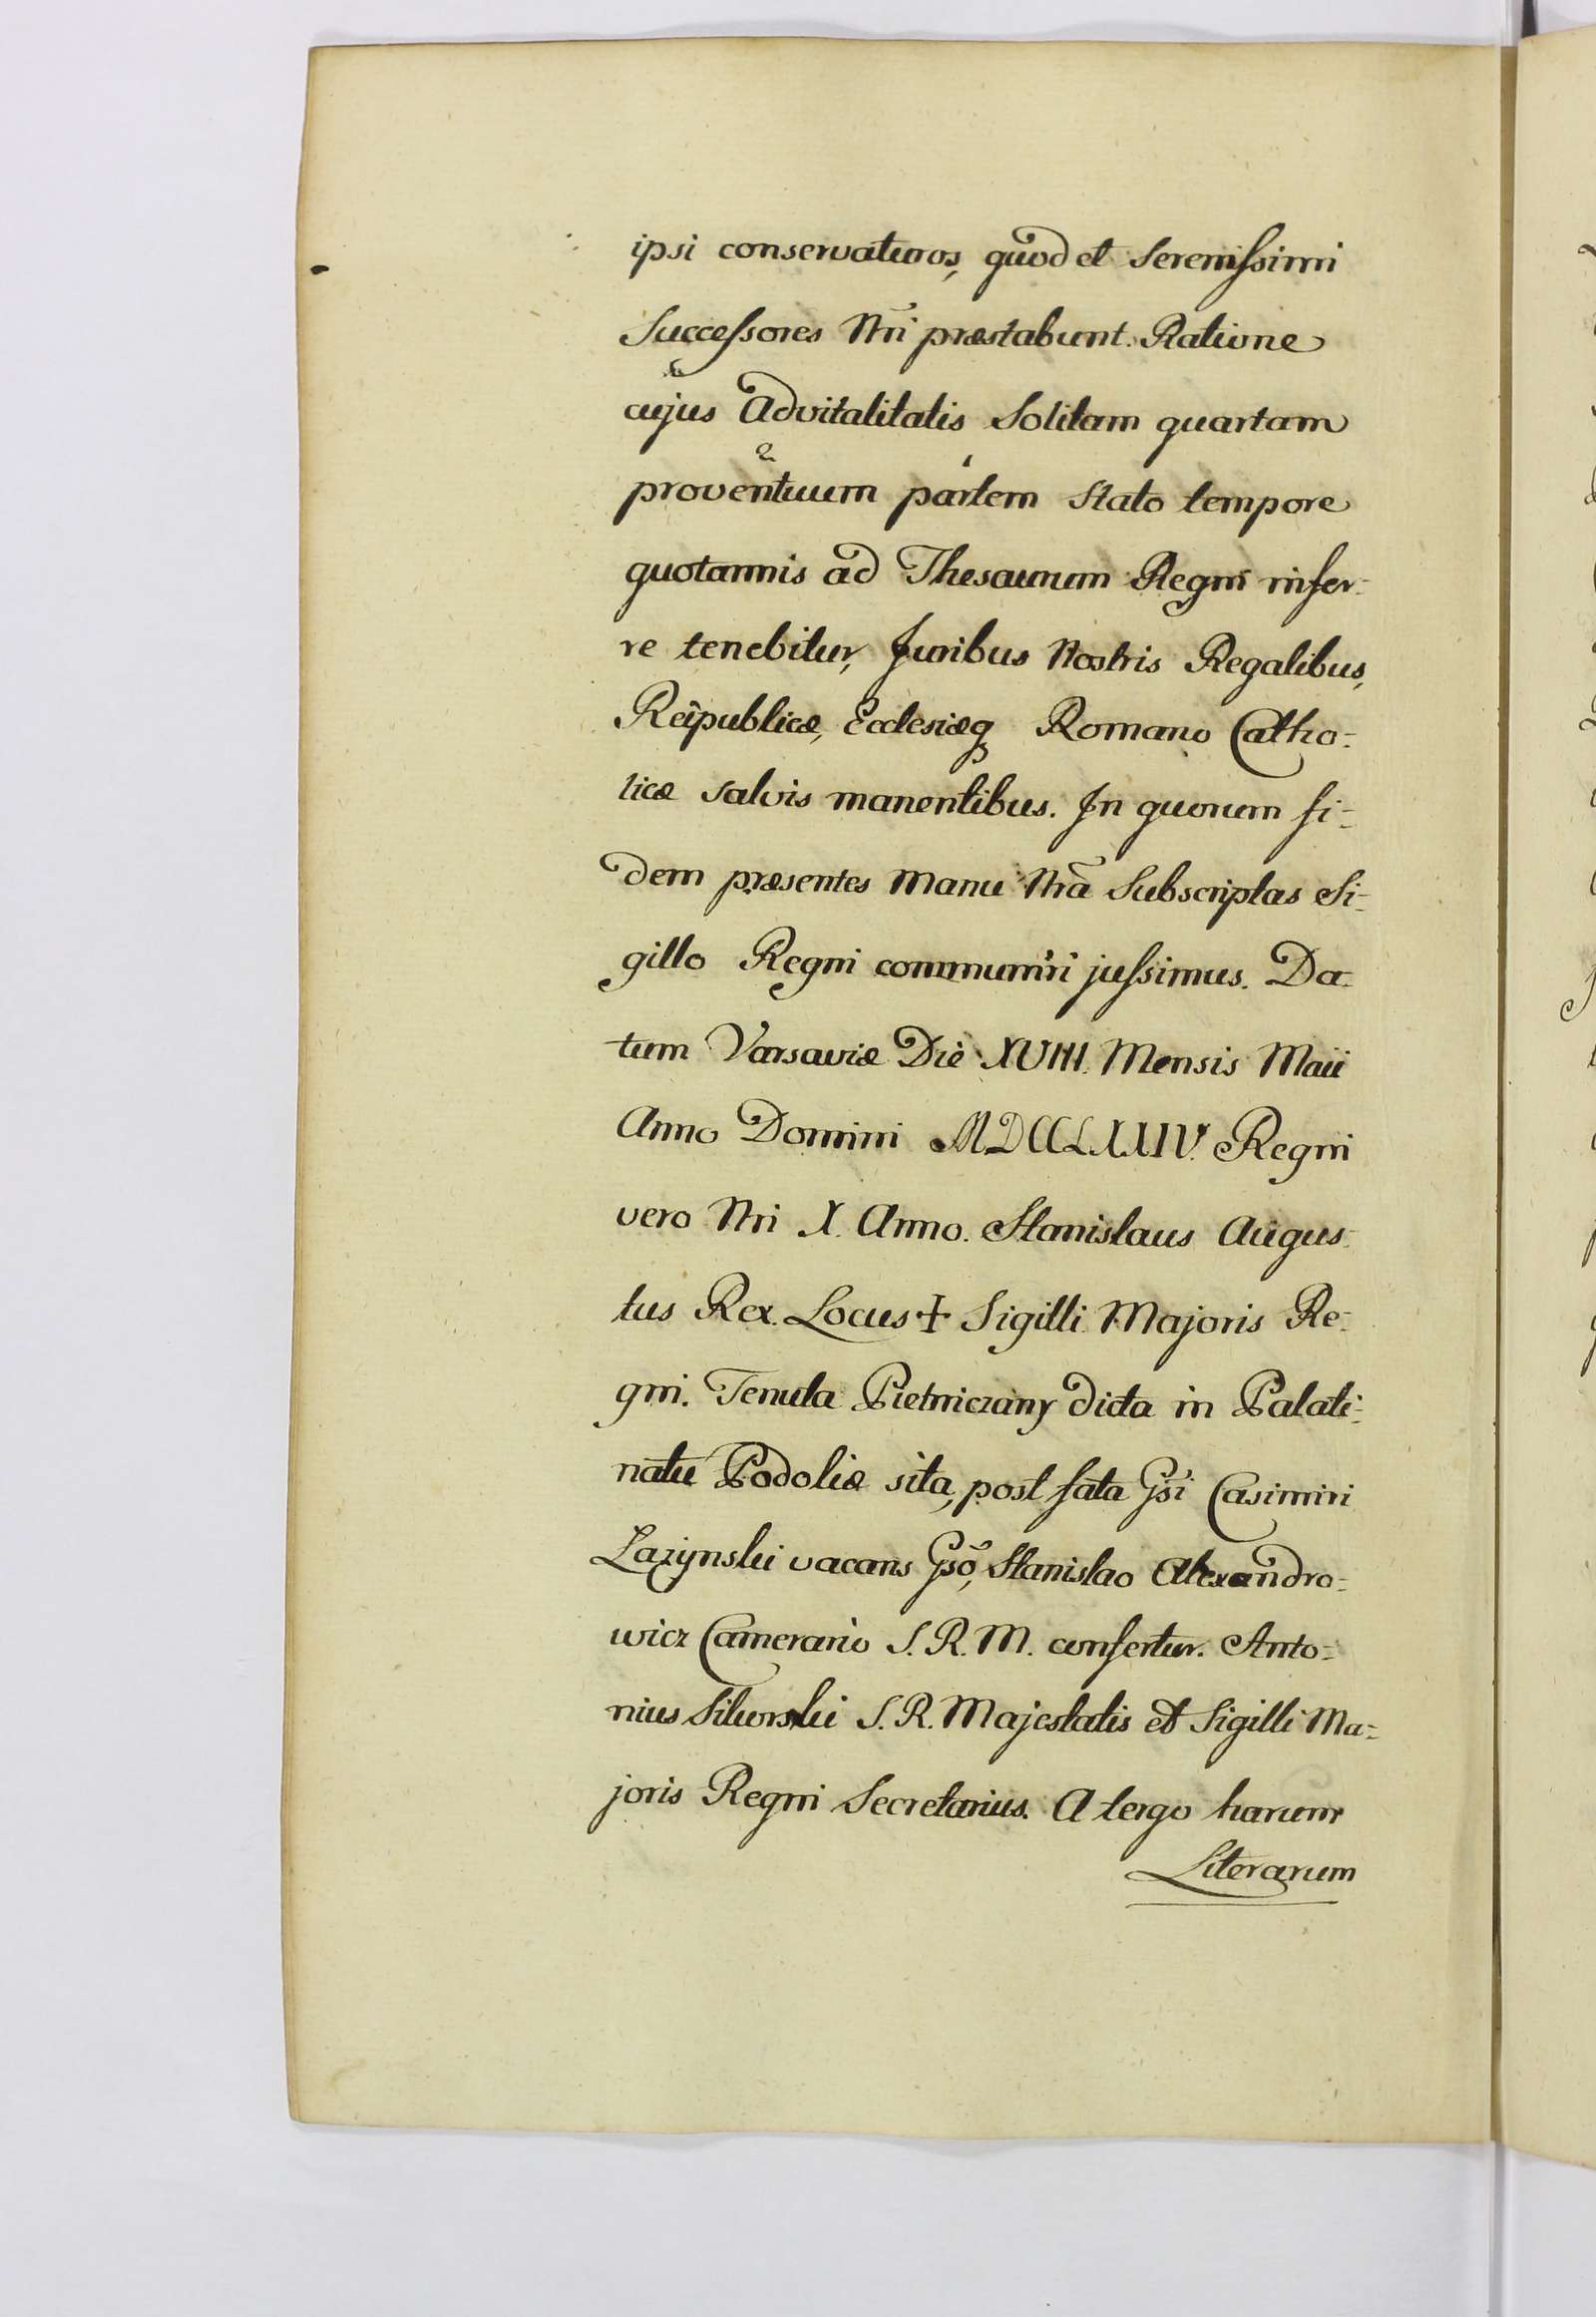 ipsi conservaturos, quod et Serenissimi
Successores Nri præstabunt. Ratione
cujus Advitalitatis Solitam quartam
proventuum partem Stato tempore
quotannis ad Thesaurum Regni infer-
re tenebitur, Juribus Nostris Regalibus,
Reipublicæ, Ecclesiæq Romano Catho-
licæ salvis manentibus. In quorum fi-
dem præsentes Manu Nrã Subscriptas Si-
gillo Regni communiri jussimus. Da-
tum Varsaviæ Die XVIII. Mensis Maii
Anno Domini MDCCLXXIV. Regni
vero Nri X. Anno. Stanislaus Augus-
tus Rex. Locus ☩ Sigilli Majoris Re-
gni. Tenuta Pietniczany dicta in Palati-
natu Podoliæ sita, post fata Gsi Casimiri
Lazynski vacans Gso, Stanislao Alexandro-
wicz Camerario S. R. M. confertur. Anto-
nius Sikorski S. R. Majestatis et Sigilli Ma-
joris Regni Secretarius. A tergo harum
Literarum